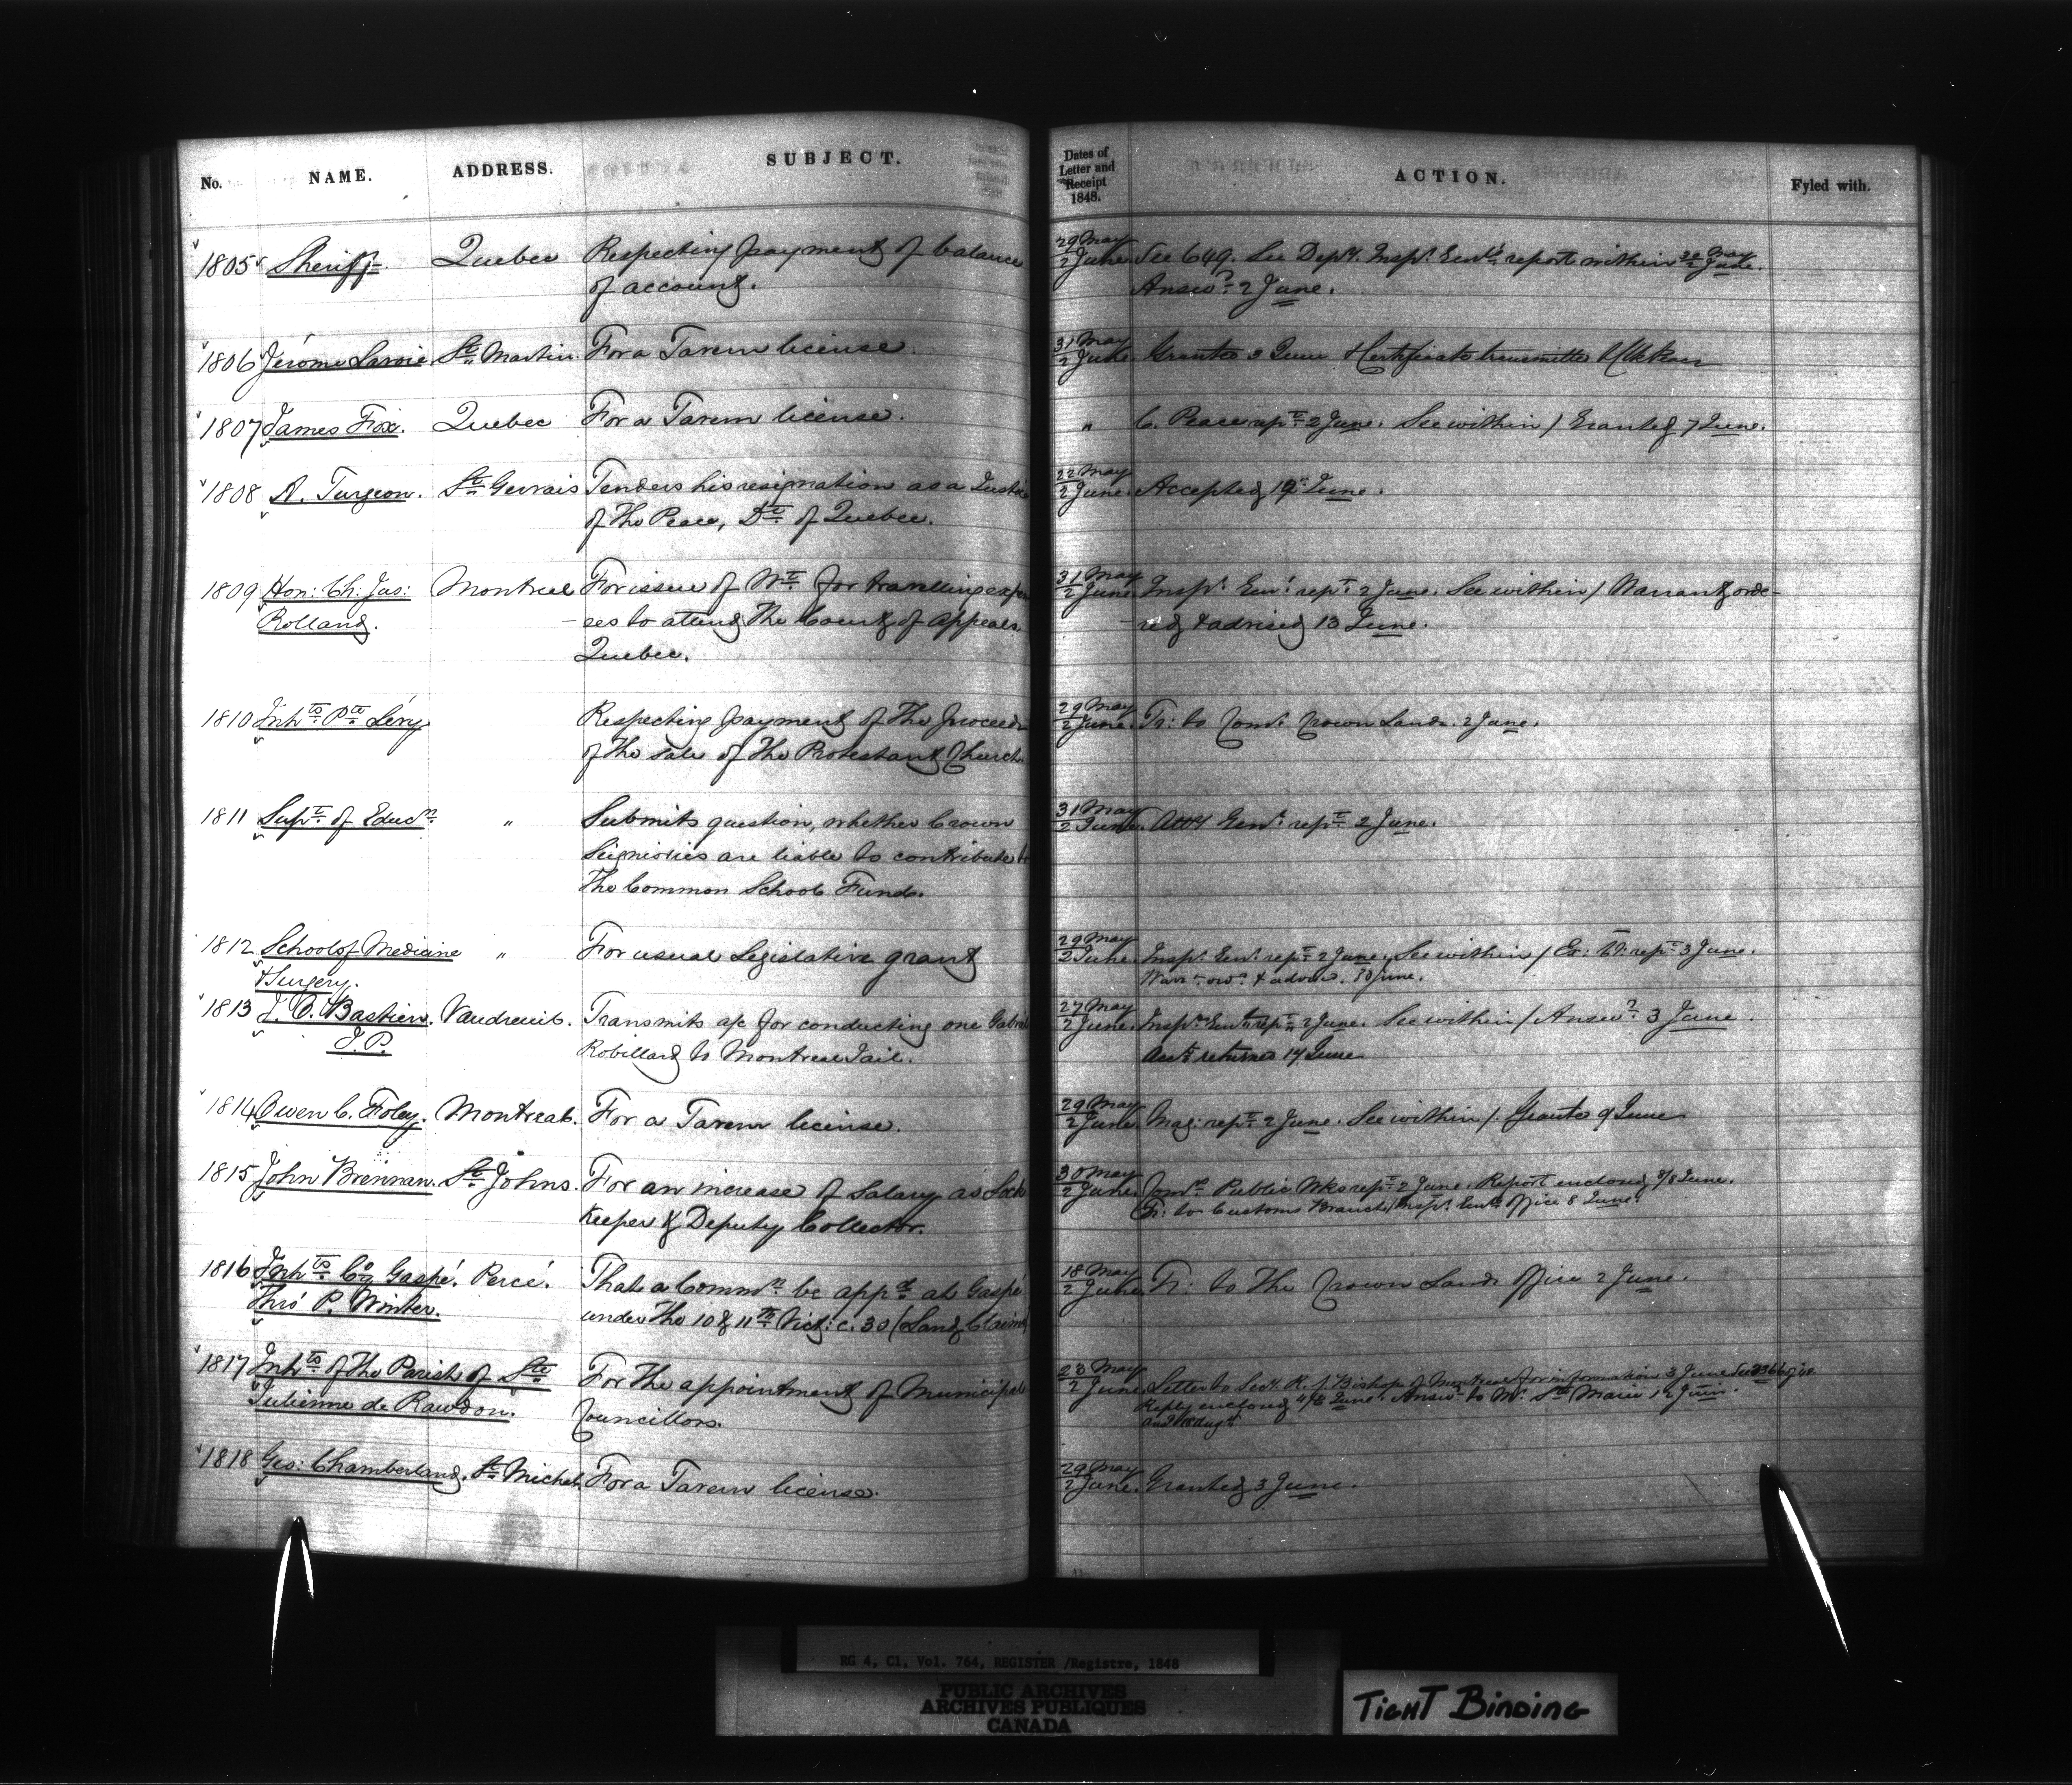 No. NAME. ADDRESS. SUBJECT. Dates of Letter and Receipt 1848. ACTION. Fyled with.
1805 Sheriff Quebec Respecting payment of balance 29 May
of account. 2 June. See 649. See Depy. Inspr. Genl's report within June.
Answd. 2 June.
1806 Jérome Lavoie. St. Martin. For a Tavern license. 31 May
2 June. Granted 3 June & Certificate transmitted
1807 James Fox. Quebec For a Tavern license. " C. Peace rept. 2 June. See within / Granted 7 June.
1808 A. Turgeon. St. Gervais Tenders his resignation as a Justice 22 May
of the Peace, Dt. of Quebec. 2 June. Accepted June.
1809 Hon: Ch: Jus: Montreal For issue of Wt. for travelling expen 31 May
Rolland. - ces to attend the Court of Appeals, 2 June Inspr. Genl. rept. 2 June. See within / Warrant orde-
Quebec. - red & advised 13 June.
1810 Inhts. Pte. Lévy Respecting payment of the proceeds 29 May
of the sale of the Protestant Church. 2 June. Tr: to Comr. Crown Lands. 2 June.
1811 Supt. of Educn. " Submits question, whether Crown 31 May
Seigniories are liable to contribute to 2 June. Atty Genl. rept. 2 June.
the Common School Fund.
1812 School of Medicine " For usual Legislative grant 29 May
& Surgery. 2 June. Inspr. Genl. rept. 2 June. See within / Ex: Co: rept. 3 June.
Warrt. ord. & advd. June.
1813 J. O. Bastien. Vaudreuil. Transmits a/c for conducting one Gabriel 27 May
J. P. Robillard to Montreal Jail. 2 June. Inspr. Genl. rept. 2 June. See within / Answd. 3 June.
Acct. returned 14 June
1814 Owen C. Foley. Montreal. For a Tavern license. 29 May
2 June. Mag: rept. 2 June. See within /. Granted 9 June
1815 John Brennan. St. Johns. For an increase of Salary as Lock 30 May
Keeper & Deputy Collector. 2 June. Comrs. Public Wks rept. 2 June. Report enclosed 8 June.
Tr: to Customs Branch Inspr. Genl's Office 8 June.
1816 Inhts. Co. Gaspé. Percé. That a Commn. be appd. at Gaspé 18 May
Thro' P. Winter. under the 10 & 11th. Vict: c: 30 (Land Claims) 2 June Tr: to the Crown Lands Office 2 June.
1817 Inhts. of the Parish of Ste. For the appointment of Municipal 23 May
Julienne de Rawdon. Councillors. 2 June. Letter to Secy. R. C. Bishop of Montreal for information 3 June
Reply enclosed June. Answd. to Mr. Ste. Marie 12 June.
1818 Geo: Chamberland. St. Michel For a Tavern license. 29 May
2 June. Granted 3 June.
RG 4, C1, Vol. 764, REGISTER /Registre, 1848
PUBLIC ARCHIVES
ARCHIVES PUBLIQUES
CANADA
TIGHT BINDING